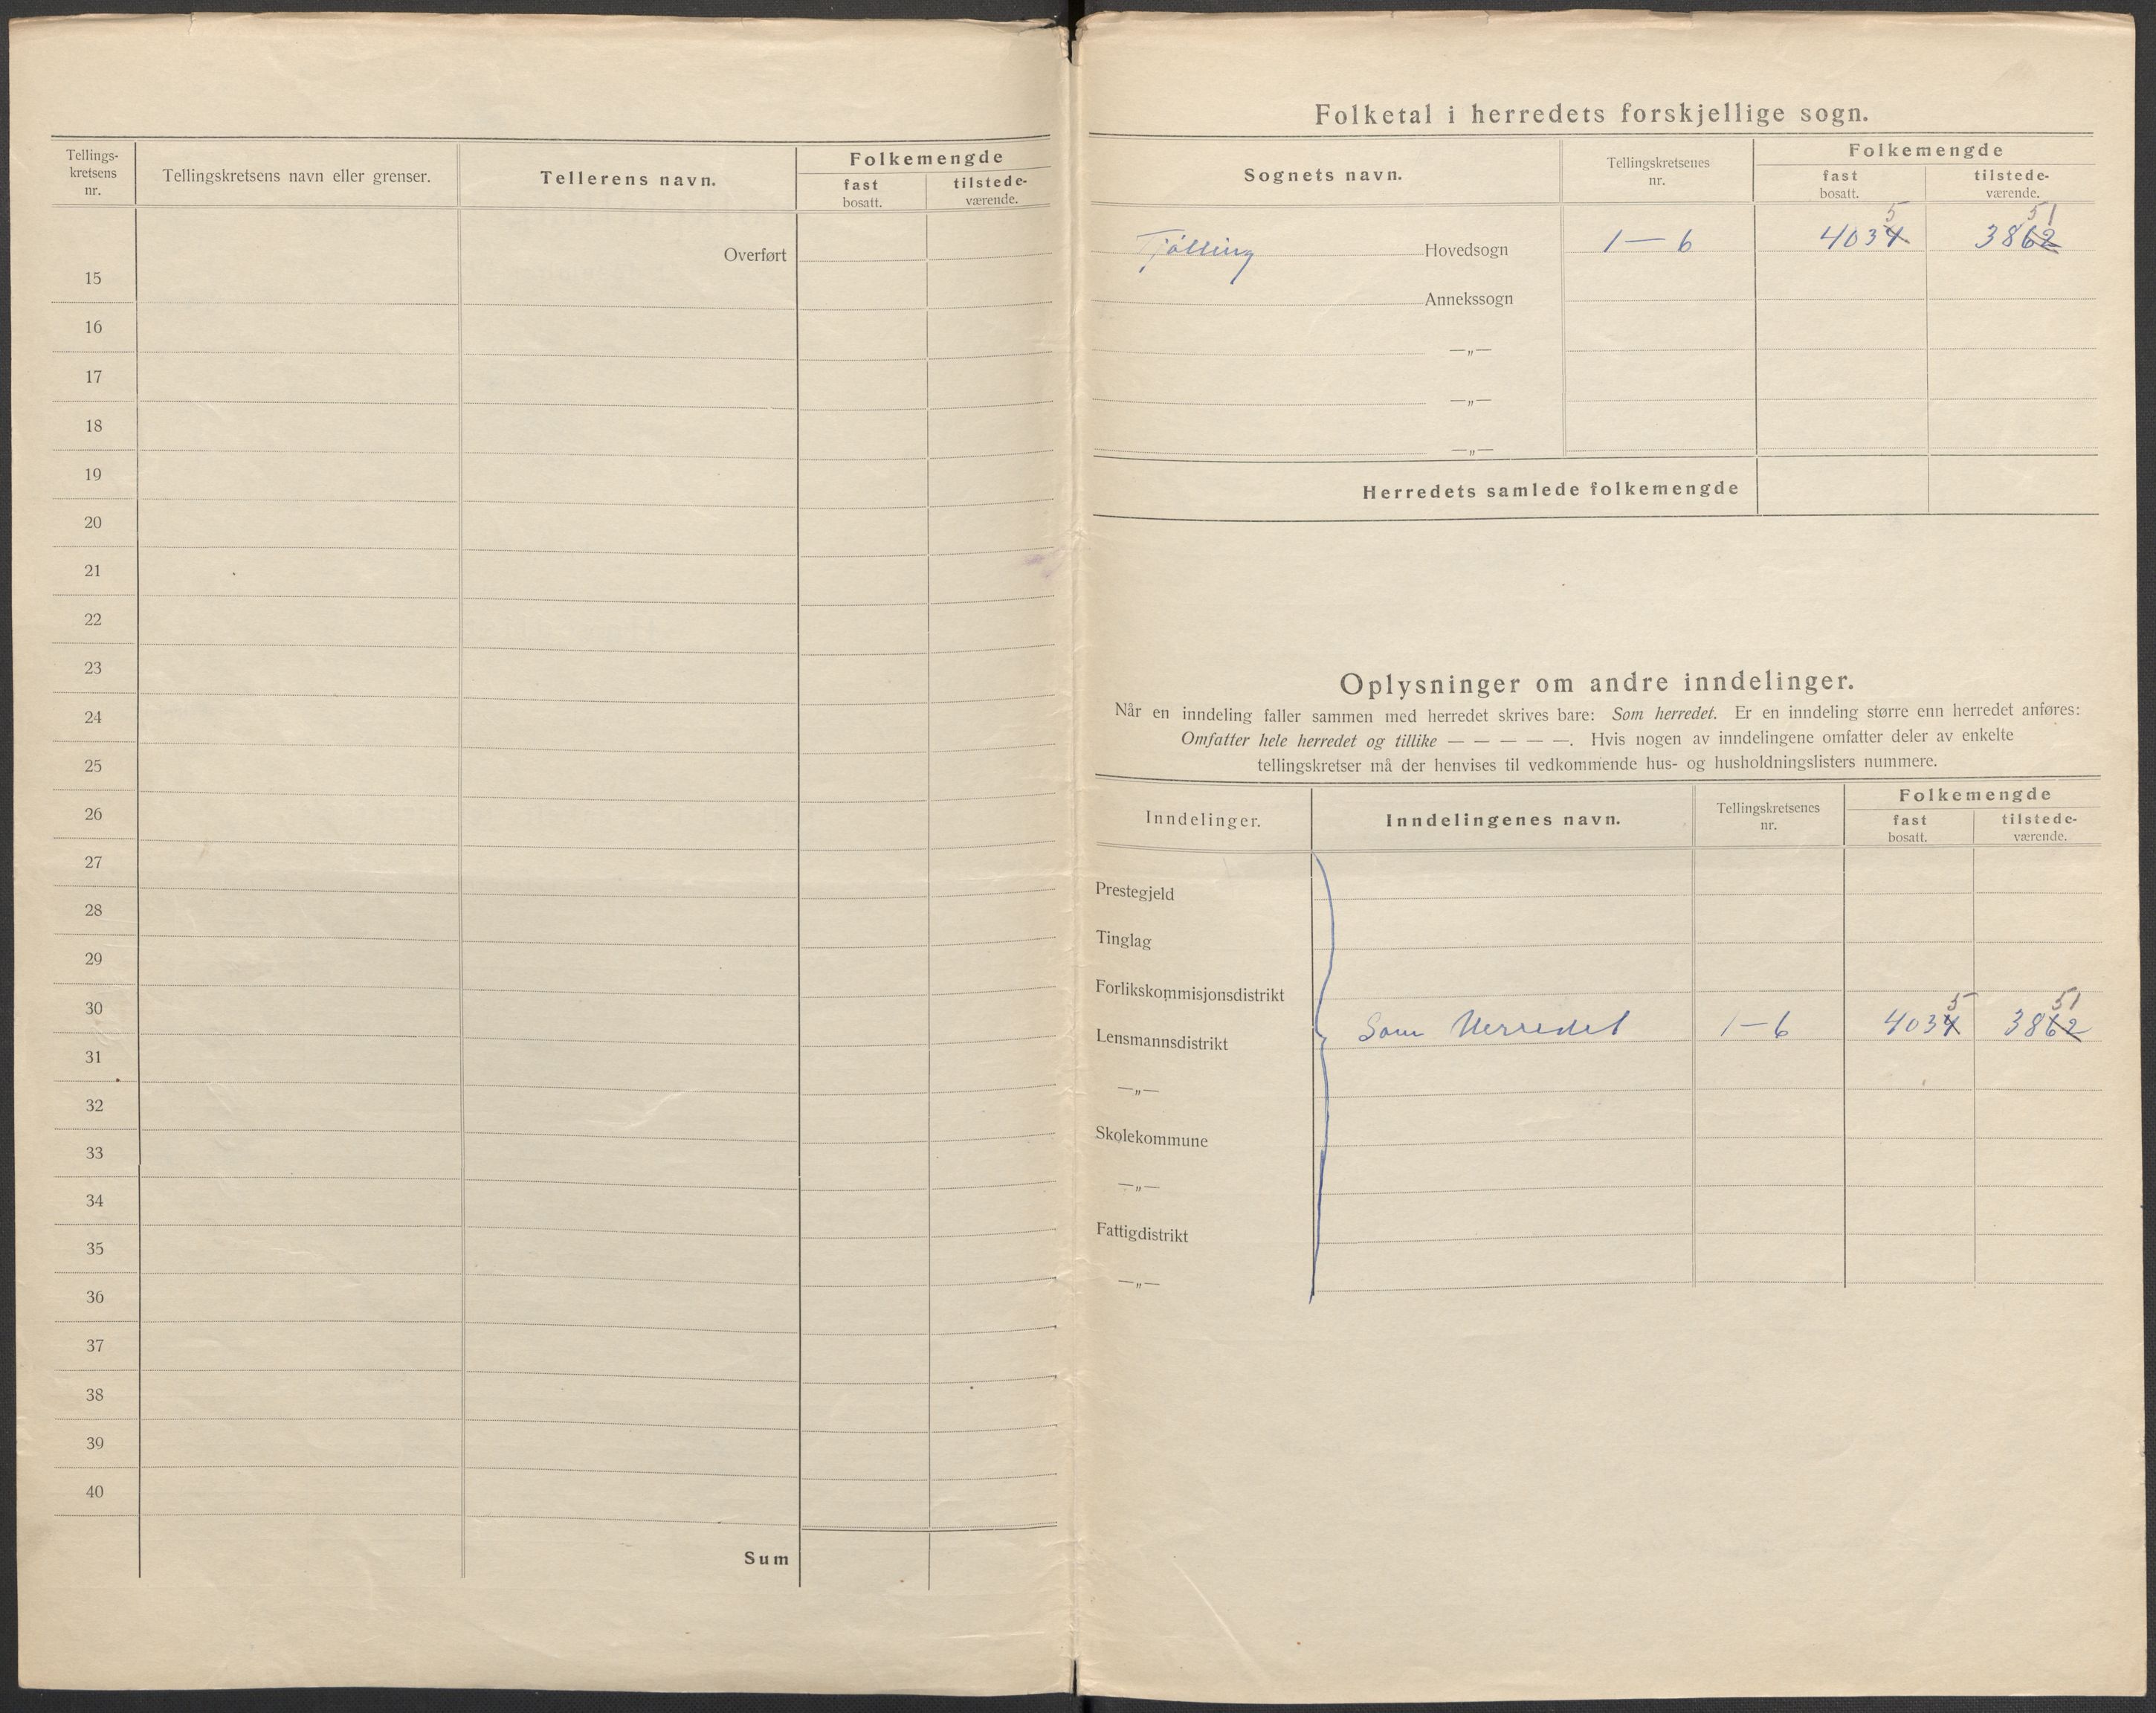 Tellings-
kretsens
nr.
Tellingskretsens navn eller grenser.
Tellerens navn.
Folkemengde
fast
bosatt.
tilstede-
værende.
Overført
15
16
17
18
19
20
21
22
23
24
25
26
27
28
29
30
31
32
33
34
35
36
37
38
39
40
Sum
Folketal i herredets forskjellige sogn.
Sognets navn.
Tellingskretsenes
nr.
Folkemengde
fast
bosatt.
tilstede-
værende.
5 51
Tjølling Hovedsogn 1—6 4034 3862
Annekssogn
—„—
—„—
—„—
Herredets samlede folkemengde
Oplysninger om andre inndelinger.
Når en inndeling faller sammen med herredet skrives bare: Som herredet. Er en inndeling større enn herredet anføres:
Omfatter hele herredet og tillike — — — — —. Hvis nogen av inndelingene omfatter deler av enkelte
tellingskretser må der henvises til vedkommende hus- og husholdningslisters nummere.
Inndelinger.
Inndelingenes navn.
Tellingskretsenes
nr.
Folkemengde
fast
bosatt.
tilstede-
værende.
Prestegjeld
Tinglag
Forlikskommisjonsdistrikt
5 51
Lensmannsdistrikt Som Herredet 1—6 4034 3862
—„—
Skolekommune
—„—
Fattigdistrikt
—„—